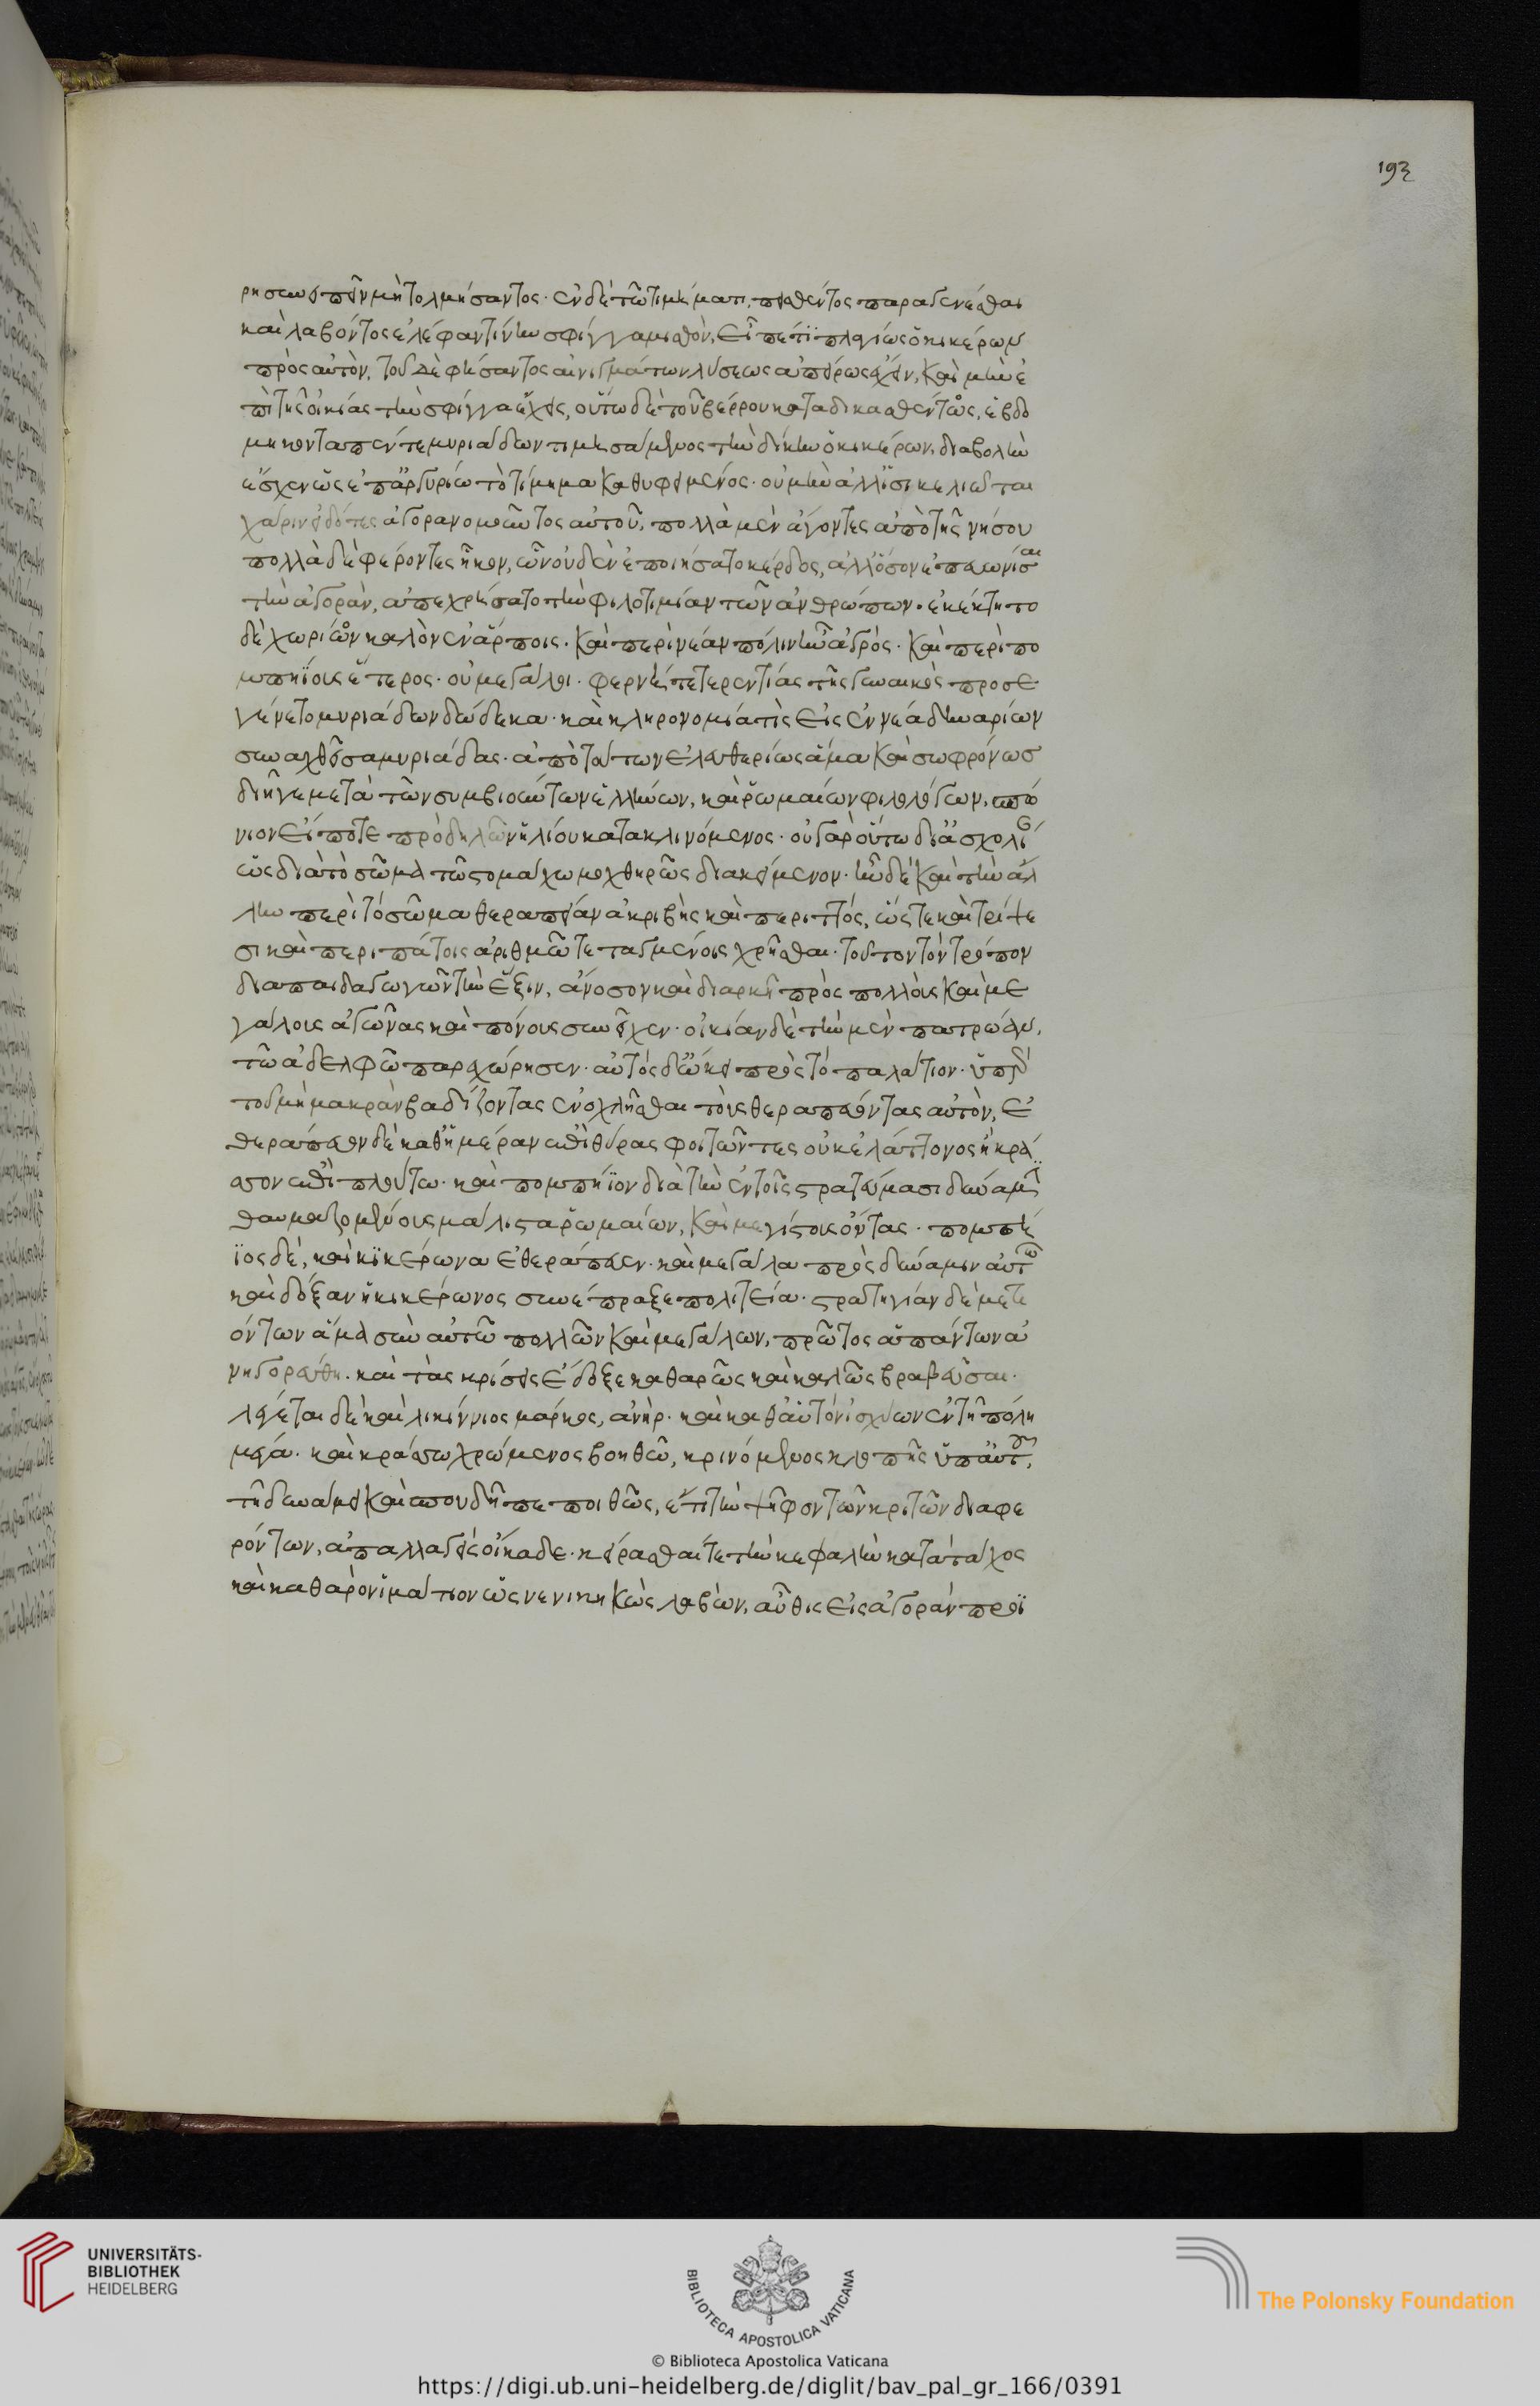 193
ρησιν εἰπεῖν μὴ τολμήσαντος. ἐν δὲ τῶ τιμήματι, πεισθέντος παραγενέσθαι
καὶ λαβόντος ἐλεφαντίνην σφίγγα μισθὸν, εἶπέ τι πλαγίως ὁ κικέρων
πρὸς αὐτὸν, τοῦ δὲ φήσαντος αἰνιγμάτων λύσεως ἀπείρως ἔχειν, καὶ μὴν ἐ
πὶ τῆς οἰκίας τὴν σφίγγα ἔχεις, οὕτω δὲ τοῦ βέρρου καταδικασθέντος, ἑβδο
μηκονταπέντε μυριάδων τιμησάμενος τὴν δίκην ὁ κικέρων, διαβολὴν
ἔσχεν ὡς ἐπ' ἀργυρίω τὸ τίμημα καθυφειμένος. οὐ μὴν ἀλλ' οἱ σικελιῶται
χάριν εἰδότες ἀγορανομοῦντος αὐτοῦ, πολλὰ μὲν ἄγοντες ἀπὸ τῆς νήσου
πολλὰ δὲ φέροντες ἧκον, ὧν οὐδὲν ἐποιήσατο κέρδος, ἀλλ' ὅσον ἐπευωνίσαι
τὴν ἀγορὰν, ἀπεχρήσατο τὴν φιλοτιμίαν τῶν ἀνθρώπων. ἐκέκτητο
δὲ χωρίον καλὸν ἐν ἄρποις. καὶ περὶ νέαν πόλιν ἦν ἀγρός. καὶ περὶ πο
μπηίους ἕτερος. οὐ μεγάλοι. φερνή τε τερεντίας τῆς γυναικὸς προσε
γένετο μυριάδων δώδεκα. καὶ κληρονομία τὶς εἰς ἐννέα δηναρίων
συναχθεῖσα μυριάδας. ἀπὸ τούτων ἐλευθερίως ἅμα καὶ σωφρόνως
διῆγε μετὰ τῶν συμβιούντων ἑλλήνων, καὶ ῥωμαίων φιλολόγων. σπά
νιον εἴποτε πρὸ δυσμῶν ἡλίου κατακλινόμενος. οὐ γὰρ οὕτω δι' ἀσχολί
ὡς διὰ τὸ σῶμα τῶ στομάχω μοχθηρῶς διακείμενον. ἦν δὲ καὶ τὴν ἄλ
λην περὶ τὸ σῶμα θεραπείαν ἀκριβὴς καὶ περιττός, ὥστε καὶ τρίψε
σι καὶ περιπάτοις ἀριθμῶ τεταγμένοις χρῆσθαι. τοῦτον τὸν τρόπον
διαπαιδαγωγῶν τὴν ἕξιν, ἄνοσον καὶ διαρκῆ πρὸς πολλοὺς καὶ με
γάλους ἀγῶνας καὶ πόνους συνεῖχεν. οἰκίαν δὲ τὴν μὲν πατρώαν,
τῶ ἀδελφῶ παρεχώρησεν. αὐτὸς δ' ὤκει πρὸς τὸ παλάτιον. ὑπὲρ
τοῦ μὴ μακρὰν βαδίζοντας ἐνοχλεῖσθαι τοὺς θεραπεύοντας αὐτὸν, ἐ
θεράπευον δὲ καθ' ἡμέραν ἐπὶ θύρας φοιτῶντες οὐκ ἐλάττονος ἢ κρά
σσον ἐπὶ πλούτω. καὶ πομπήϊον διὰ τὴν ἐν τοῖς στρατεύμασι δύναμιν
θαυμαζομένους μάλιστα ῥωμαίων, καὶ μεγίστους ὄντας. πομπή
ϊος δὲ, καὶ κικέρωνα ἐθεράπευεν. καὶ μεγάλα πρὸς δύναμιν αὐτῶ
καὶ δόξαν ἡ κικέρωνος συνέπραξε πολιτεία. στρατηγίαν δὲ μετι
όντων ἅμα σὺν αὐτῶ πολλῶν καὶ μεγάλων, πρῶτος ἁπάντων ἀ
νηγορεύθη. καὶ τὰς κρίσεις ἔδοξε καθαρῶς καὶ καλῶς βραβεῦσαι.
λέγεται δὲ καὶ λικίννιος μάρκος, ἀνὴρ. καὶ καθ' αὑτὸν ἰσχύων ἐν τῆ πόλει
μέγα. καὶ κράσσω χρώμενος βοηθῶ, κρινόμενος κλοπῆς ὑπ' αὐτοῦ,
τῆ δυνάμει καὶ σπουδῆ πεποιθὼς, ἔτι τὴν ψῆφον τῶν κριτῶν διαφε
ρόντων, ἀπαλλαγεὶς οἴκαδε. κείρασθαί τε τὴν κεφαλὴν κατὰ τάχος
καὶ καθαρὸν ἱμάτιον ὡς νενικηκὼς λαβὼν, αὖθις εἰς ἀγορὰν προϊ
UNIVERSITÄTS-
BIBLIOTHEK
HEIDELBERG
BIBLIOTECA APOSTOLICA VATICANA
The Polonsky Foundation
© Biblioteca Apostolica Vaticana
https://digi.ub.uni-heidelberg.de/diglit/bav_pal_gr_166/0391